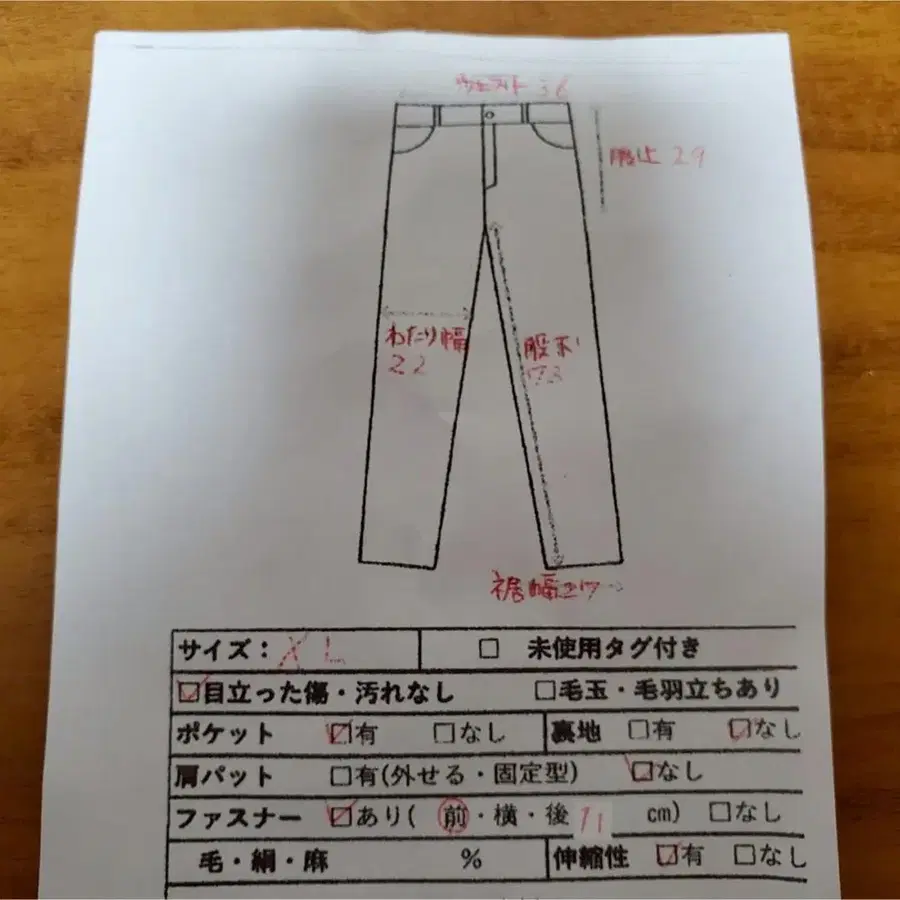 ウエスト 36
股上 29
わたり幅
22
股下
73
裾幅 27
サイズ： XL □ 未使用タグ付き
☑目立った傷・汚れなし □毛玉・毛羽立ちあり
ポケット ☑有 □なし 裏地 □有 ☑なし
肩パット □有(外せる・固定型) ☑なし
ファスナー ☑あり( 前・横・後 11 cm) □なし
毛・絹・麻 % 伸縮性 ☑有 □なし